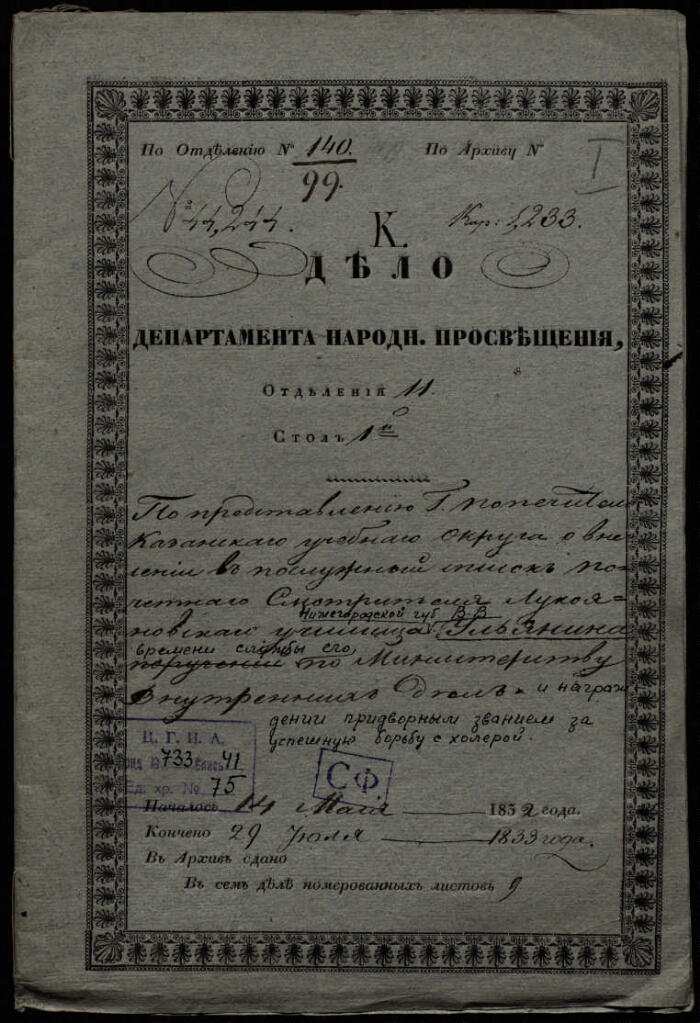 По Отдѣленію № 140. По Архиву № I
99.
№ 44,244. Кар: 1,233.
К.
ДѢЛО
ДЕПАРТАМЕНТА НАРОДН. ПРОСВѢЩЕНІЯ,
Отдѣленія 11.
Столъ 1й
По представленію Г. Попечителя
Казанскаго учебнаго округа о вне-
сеніи въ послужный списокъ по-
четнаго Смотрителя Лукоя=
Нижегородской губ В.В
новскаго училища Ульянина
времени службы его
порученій по Министерству
Внутреннихъ Дѣлъ и награж
дении придворным званием за
успешную борьбу с холерой.
Ц. Г. И. А.
ФОНД № 733 Опись 41
Ед. хр. № 75
СФ.
Началось 14 Мая 1832 года.
Кончено 29 Іюля 1833 года.
Въ Архивъ сдано
Въ семъ дѣлѣ номерованныхъ листовъ 9